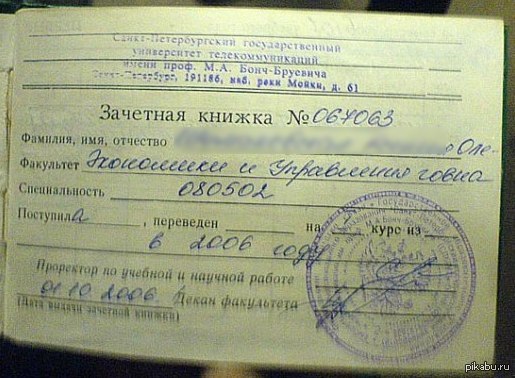 Санкт-Петербургский государственный
университет телекоммуникаций
имени проф. М.А. Бонч-Бруевича
Санкт-Петербург, 191186, наб. реки Мойки, д. 61
Зачетная книжка № 067063
Фамилия, имя, отчество Оле-
Факультет Экономики и Управления говна
Специальность 080502
Поступила, переведен на курс из
в 2006 году
Проректор по учебной и научной работе
01.10.2006. Декан факультета
(Дата выдачи зачетной книжки)
pikabu.ru